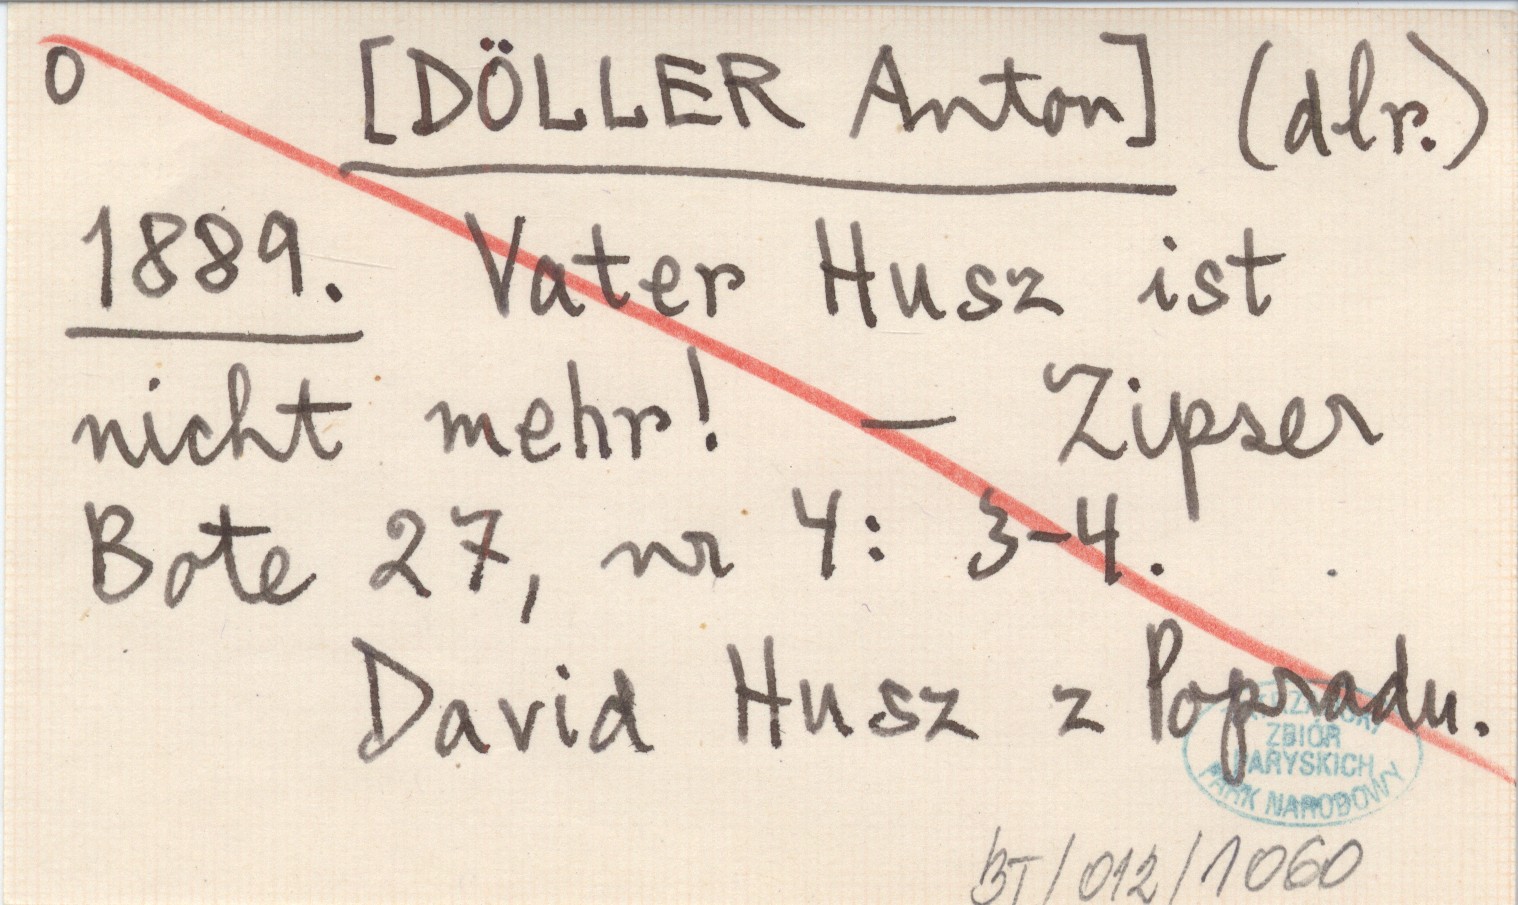 O [DÖLLER Anton] (dlr.)
1889. Vater Husz ist
nicht mehr! — Zipser
Bote 27, nr 4: 3-4.
David Husz z Popradu.
ZBIÓR
PARYSKICH
PARK NARODOWY
BT/012/1060